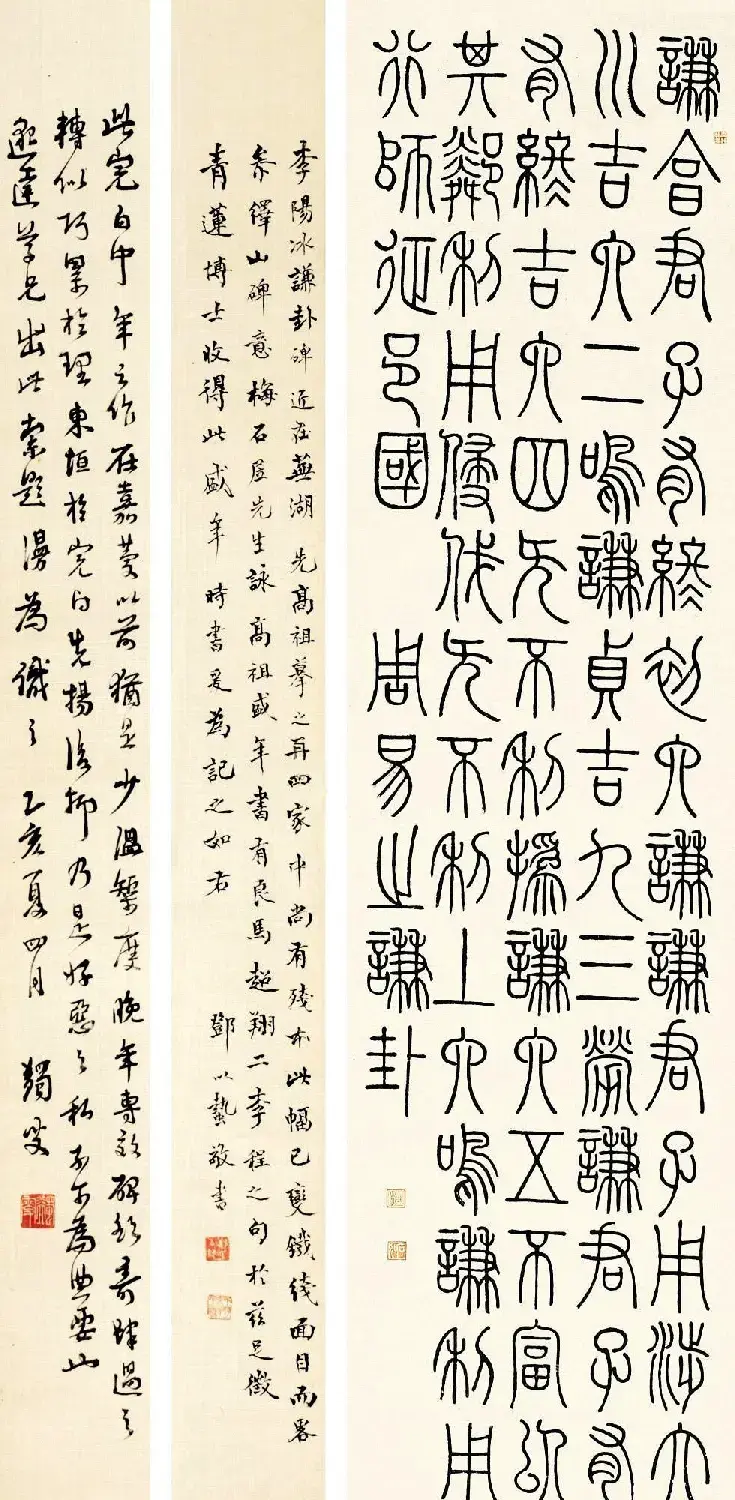 謙亯君子有終初六謙謙君子用涉大
川吉六二鳴謙貞吉九三勞謙君子有
有終吉六四无不利撝謙六五不富以
其鄰利用侵伐无不利上六鳴謙利用
行師征邑國 周易之謙卦
李陽冰謙卦碑近在蕪湖先高祖摹之再四家中尚有殘本此幅已變鐵綫面目而畧
參繹山碑意梅石居先生詠高祖盛年書有良馬超翔二李程之句於茲足徵
青蓮博士收得此盛年時書爰為記之如右 鄧以蟄敬書
此完白中年之作在嘉慶以前猶是少溫榘度晚年專效碑額奇肆過之
轉似巧累於理東垣於完白先揚後抑乃是好惡之私不可為典要也
學兄出此索題漫為識之 乙亥夏四月 蠲叟